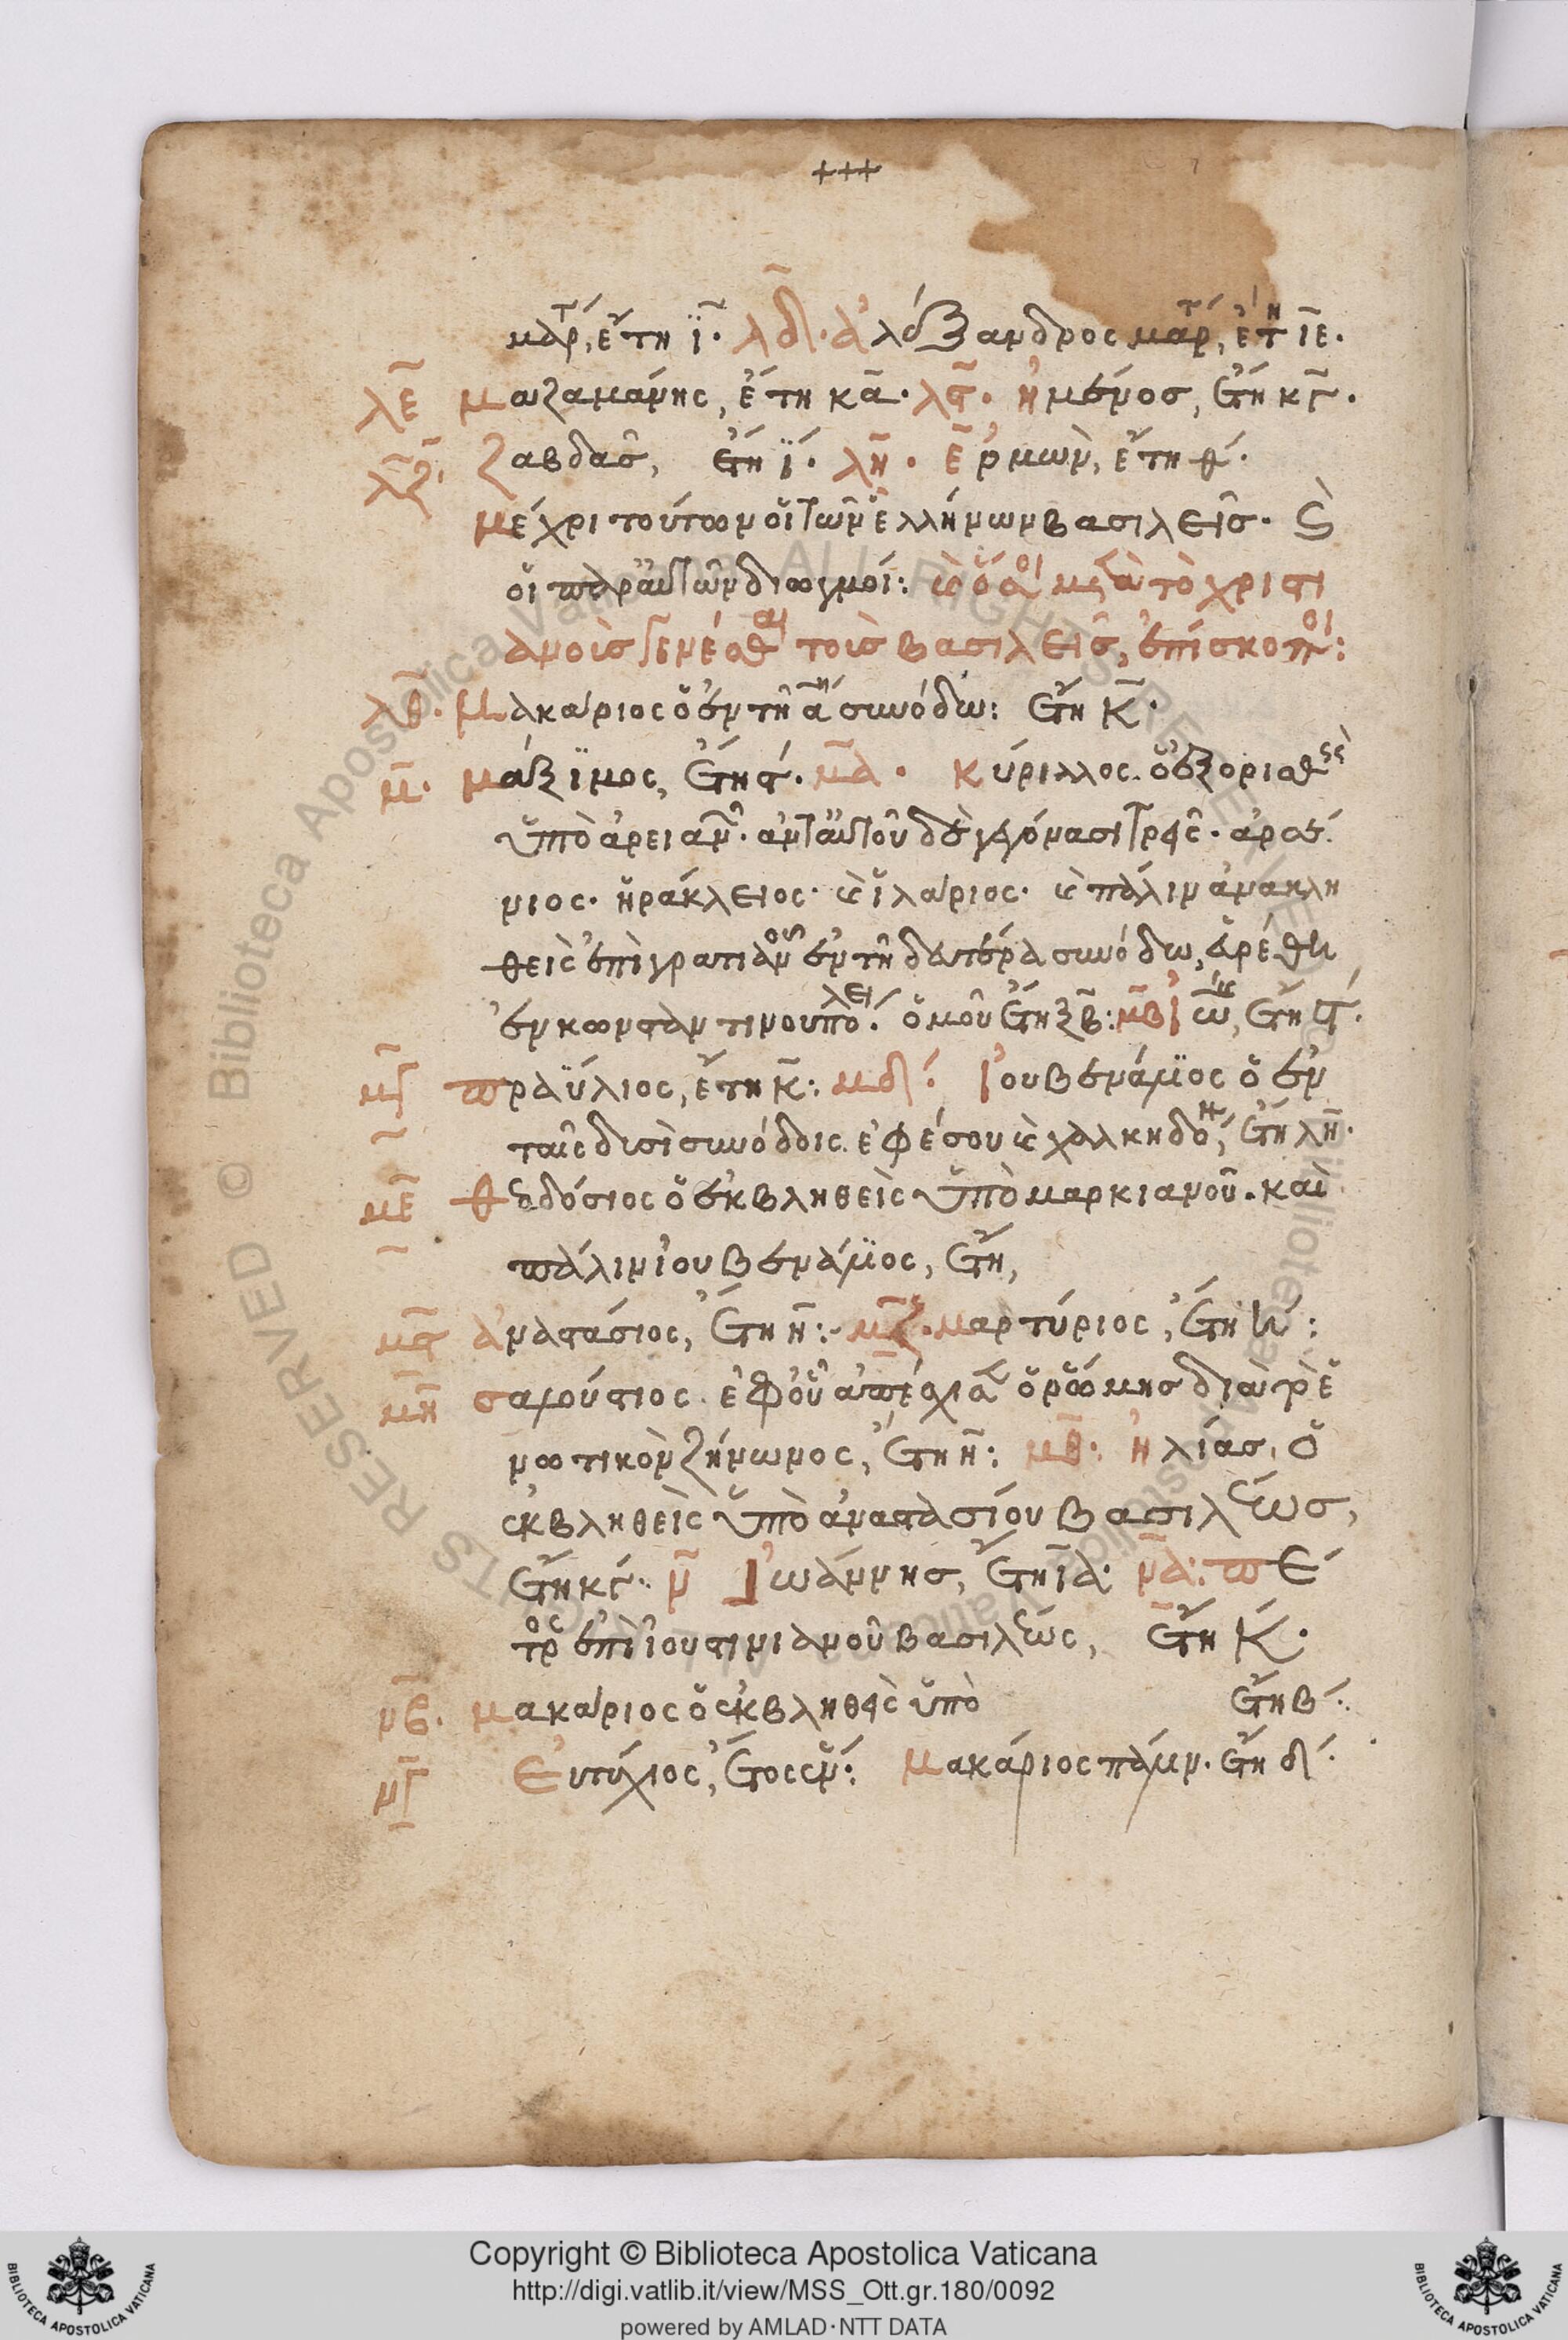 +++
μάρτ, ἔτη ϊ. λδ. ἀλέξανδρος μάρτ, ἔτη ιε.
λε μαζαμάνης, ἔτη κα. λϛ. ἡμένος, ἔτη κγ.
λζ. ζαβδᾶς, ἔτη ϊ. λη. ἑρμων, ἔτη θ.
μέχρι τούτων οἱ τῶν ἑλλήνων βασιλεῖς. καὶ
οἱ παρ' αὐτῶν διωγμοί: καὶ ὅσοι μετὰ τὸ χριστι
ανοὺς γενέσθαι τοὺς βασιλεῖς, ἐπίσκοποι:
λθ. μακάριος ὁ ἐν τῇ αη συνόδω: ἔτη κ.
μ. μάξϊμος, ἔτη ϛ. μα. κύριλλος. ὁ ἐξορισθεὶς
ὑπὸ ἀρειανῶν. ἀντ' αὐτοῦ δὲ γεγόνασι τρεῖς. ἀρσέ
νιος. ἡράκλειος. καὶ ἱλάριος. καὶ πάλιν ἀνακλη
θεὶς ἐπὶ γρατιανοῦ ἐν τῇ δευτέρα συνόδω, εὑρέθη
ἐν κωνσταντινουπόλει. ὁμοῦ ἔτη ξβ: μβ ἰωάν, ἔτη ϛ.
μγ πραΰλιος, ἔτη κ: μδ. ἰουβενάλϊος ὁ ἐν
ταῖς δυσὶ συνόδοις. ἐφέσου καὶ χαλκηδόν, ἔτη λη.
με θεοδόσιος ὁ ἐκβληθεὶς ὑπὸ μαρκιανοῦ. καὶ
πάλιν ἰουβενάλϊος, ἔτη,
μϛ ἀναστάσιος, ἔτη η: μζ. μαρτύριος, ἔτη η:
μη σαλούστιος. ἐφ' οὗ ἀπέσχισαν ὁ ῥώμης διὰ τὸ ἑ
νωτικὸν ζήνωνος, ἔτη η: μθ. ἡλίας, ὁ
ἐκβληθεὶς ὑπὸ ἀναστασίου βασιλέως,
ἔτη κγ. ν ἰωάννης, ἔτη ια: να: πέ
τρος ἐπὶ ἰουστινιανοῦ βασιλέως, ἔτη κ.
νβ. μακάριος ὁ ἐκβληθεὶς ὑπὸ ἔτη β.
νγ εὐτύχιος, ἔτος ἕν: μακάριος πάλιν. ἔτη δ.
Copyright © Biblioteca Apostolica Vaticana
http://digi.vatlib.it/view/MSS_Ott.gr.180/0092
powered by AMLAD·NTT DATA